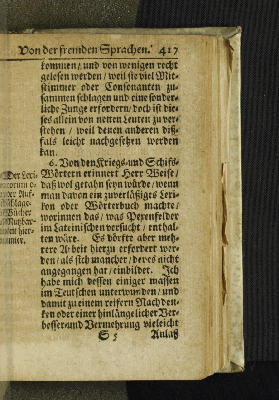 Von der fremden Sprachen. 417
kommen / und von wenigen recht
gelesen werden / weil sie viel Mit-
stimmer oder Consonanten zu-
sammen schlagen und eine sonder-
liche Zunge erfordern / doch ist die-
ses allein von netten Leuten zu ver-
stehen / weil denen anderen diß-
fals leicht nachgesehen werden
kan.
6. Von den Kriegs- und Schifs-
Wörtern erinnert Herr Weise /
daß wol gethan seyn würde / wenn
man davon ein zuverläßiges Lexi-
kon oder Wörterbuch machte /
worinnen das / was Pexenfelder
im Lateinischen versucht / enthal-
ten wäre. Es dörfte aber meh-
rere Arbeit hierzu erfordert wer-
den / als sich mancher / der es nicht
angegangen hat / einbildet. Ich
habe mich dessen einiger massen
im Teutschen unterwunden / und
damit zu einem reifern Nachden-
ken oder einer hinlängelicher Ver-
besser- und Vermehrung vieleicht
S 5 Anlaß